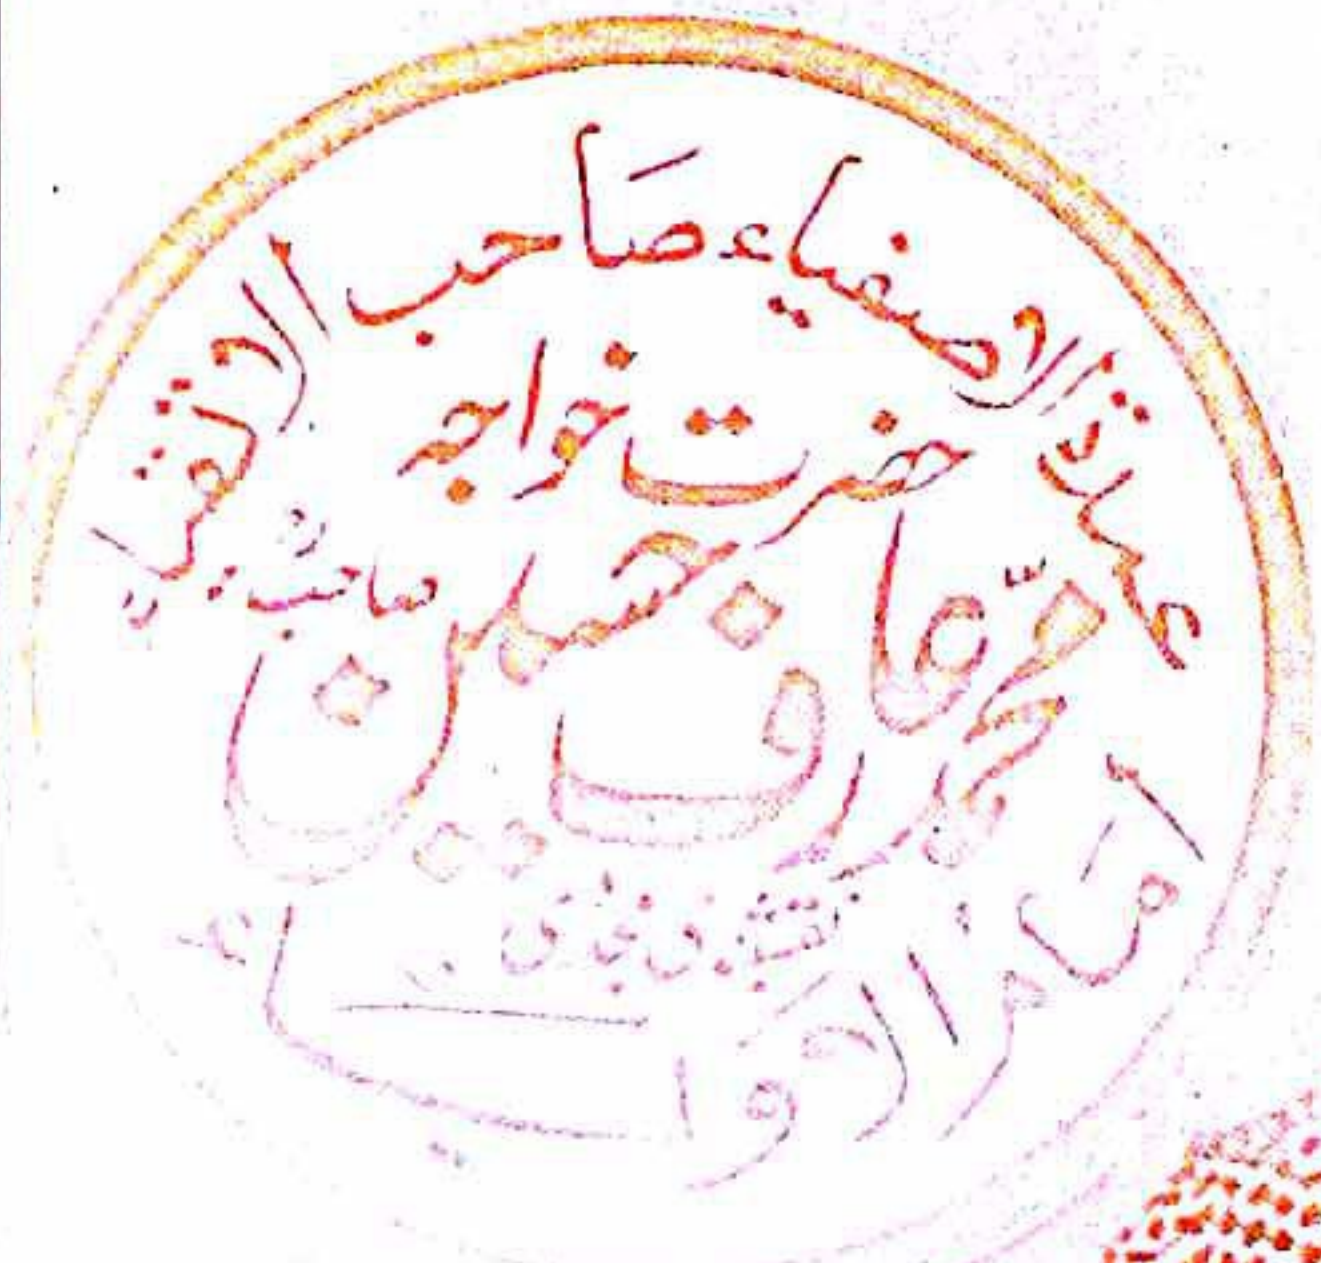 عمدة الاصفیاء صاحب الاتقیاء
حضرت خواجہ
محمد عارف حسین صاحبؒ
نقشبندی